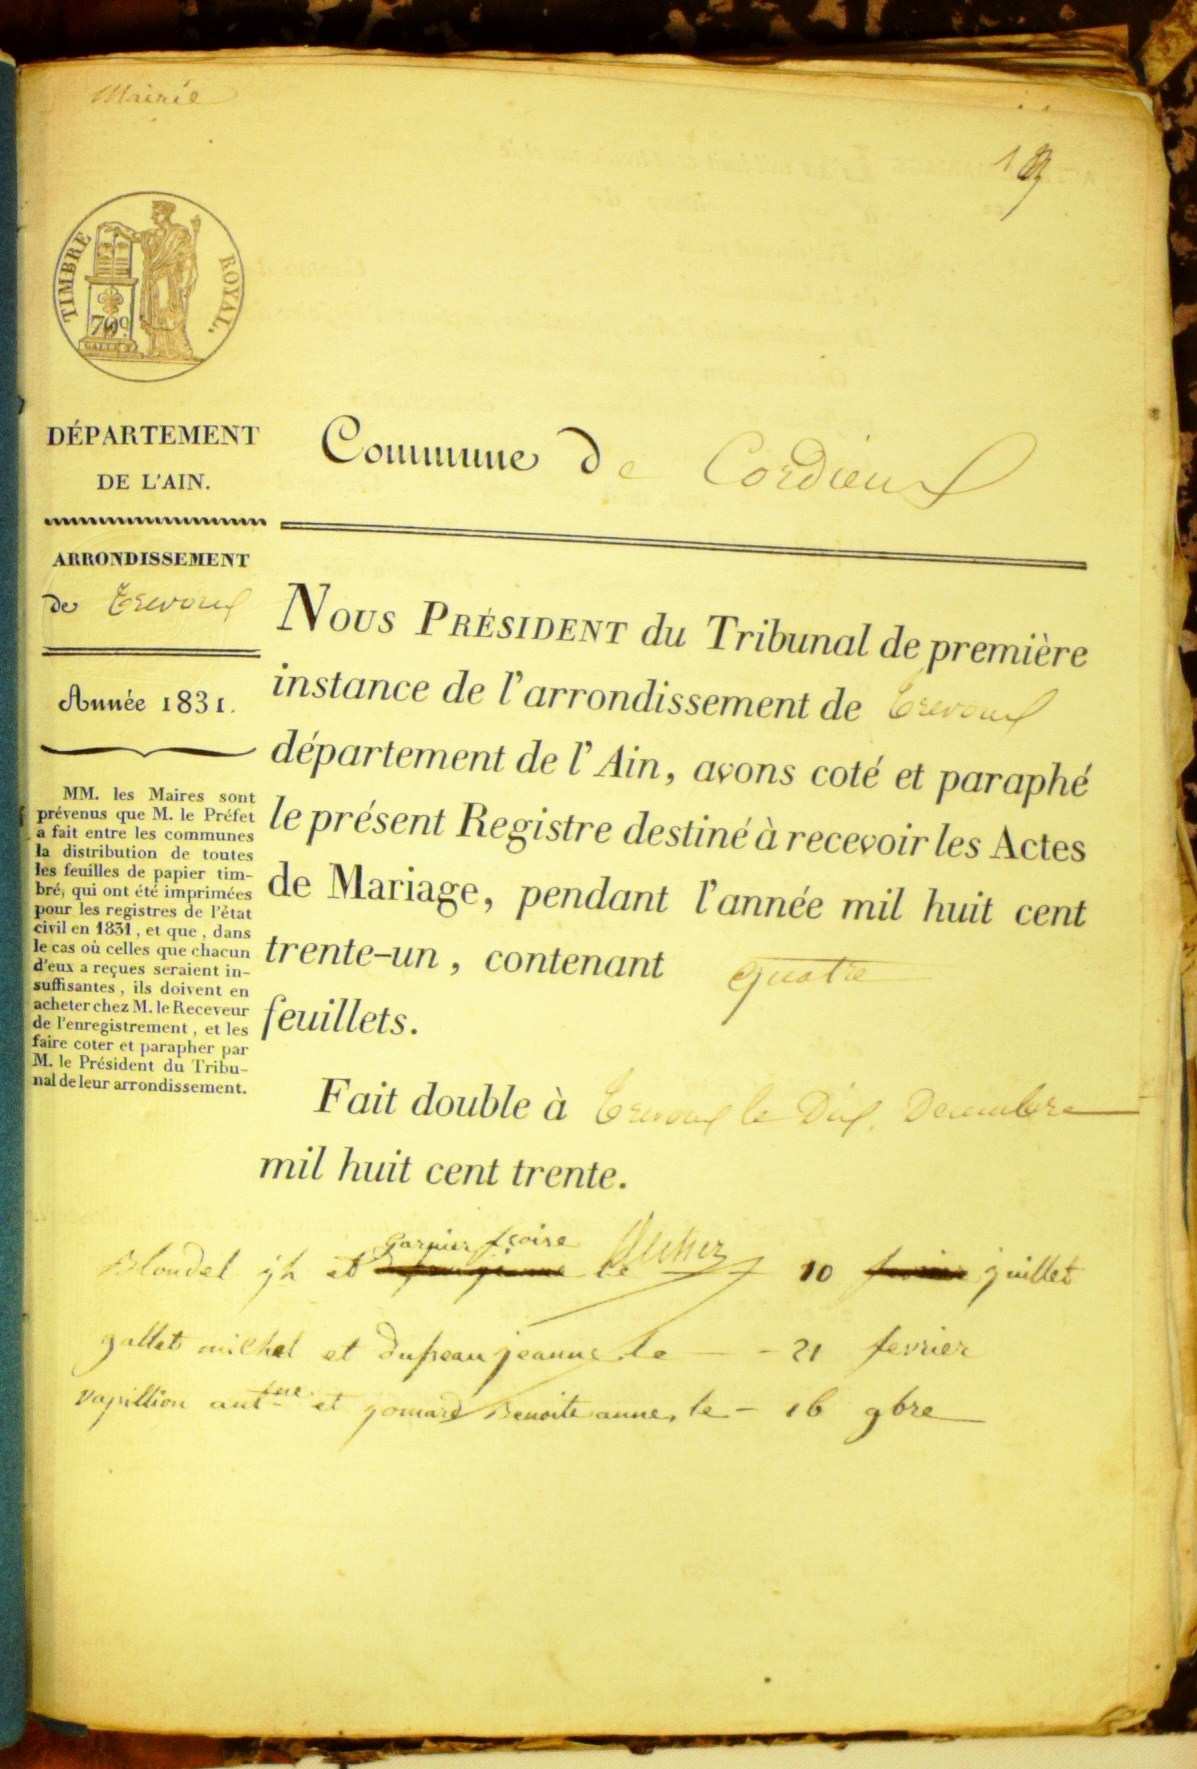 Mairie
TIMBRE ROYAL.
70c
DÉPARTEMENT
DE L'AIN.
ARRONDISSEMENT
de Trevoux
Année 1831.
MM. les Maires sont
prévenus que M. le Préfet
a fait entre les communes
la distribution de toutes
les feuilles de papier tim-
bré, qui ont été imprimées
pour les registres de l'état
civil en 1831, et que, dans
le cas où celles que chacun
d'eux a reçues seraient in-
suffisantes, ils doivent en
acheter chez M. le Receveur
de l'enregistrement, et les
faire coter et parapher par
M. le Président du Tribu-
nal de leur arrondissement.
Commune de Cordieux
NOUS PRÉSIDENT du Tribunal de première
instance de l'arrondissement de Trevoux
département de l'Ain, avons coté et paraphé
le présent Registre destiné à recevoir les Actes
de Mariage, pendant l'année mil huit cent
trente-un, contenant quatre
feuillets.
Fait double à Trevoux le Dix Decembre
mil huit cent trente.
garnier fçoise
Blondel jh et le 10 juillet
gallet michel et Dupeau jeanne le - - 21 fevrier
vapillion anttne et gomard Benoite anne, le - 16 9bre